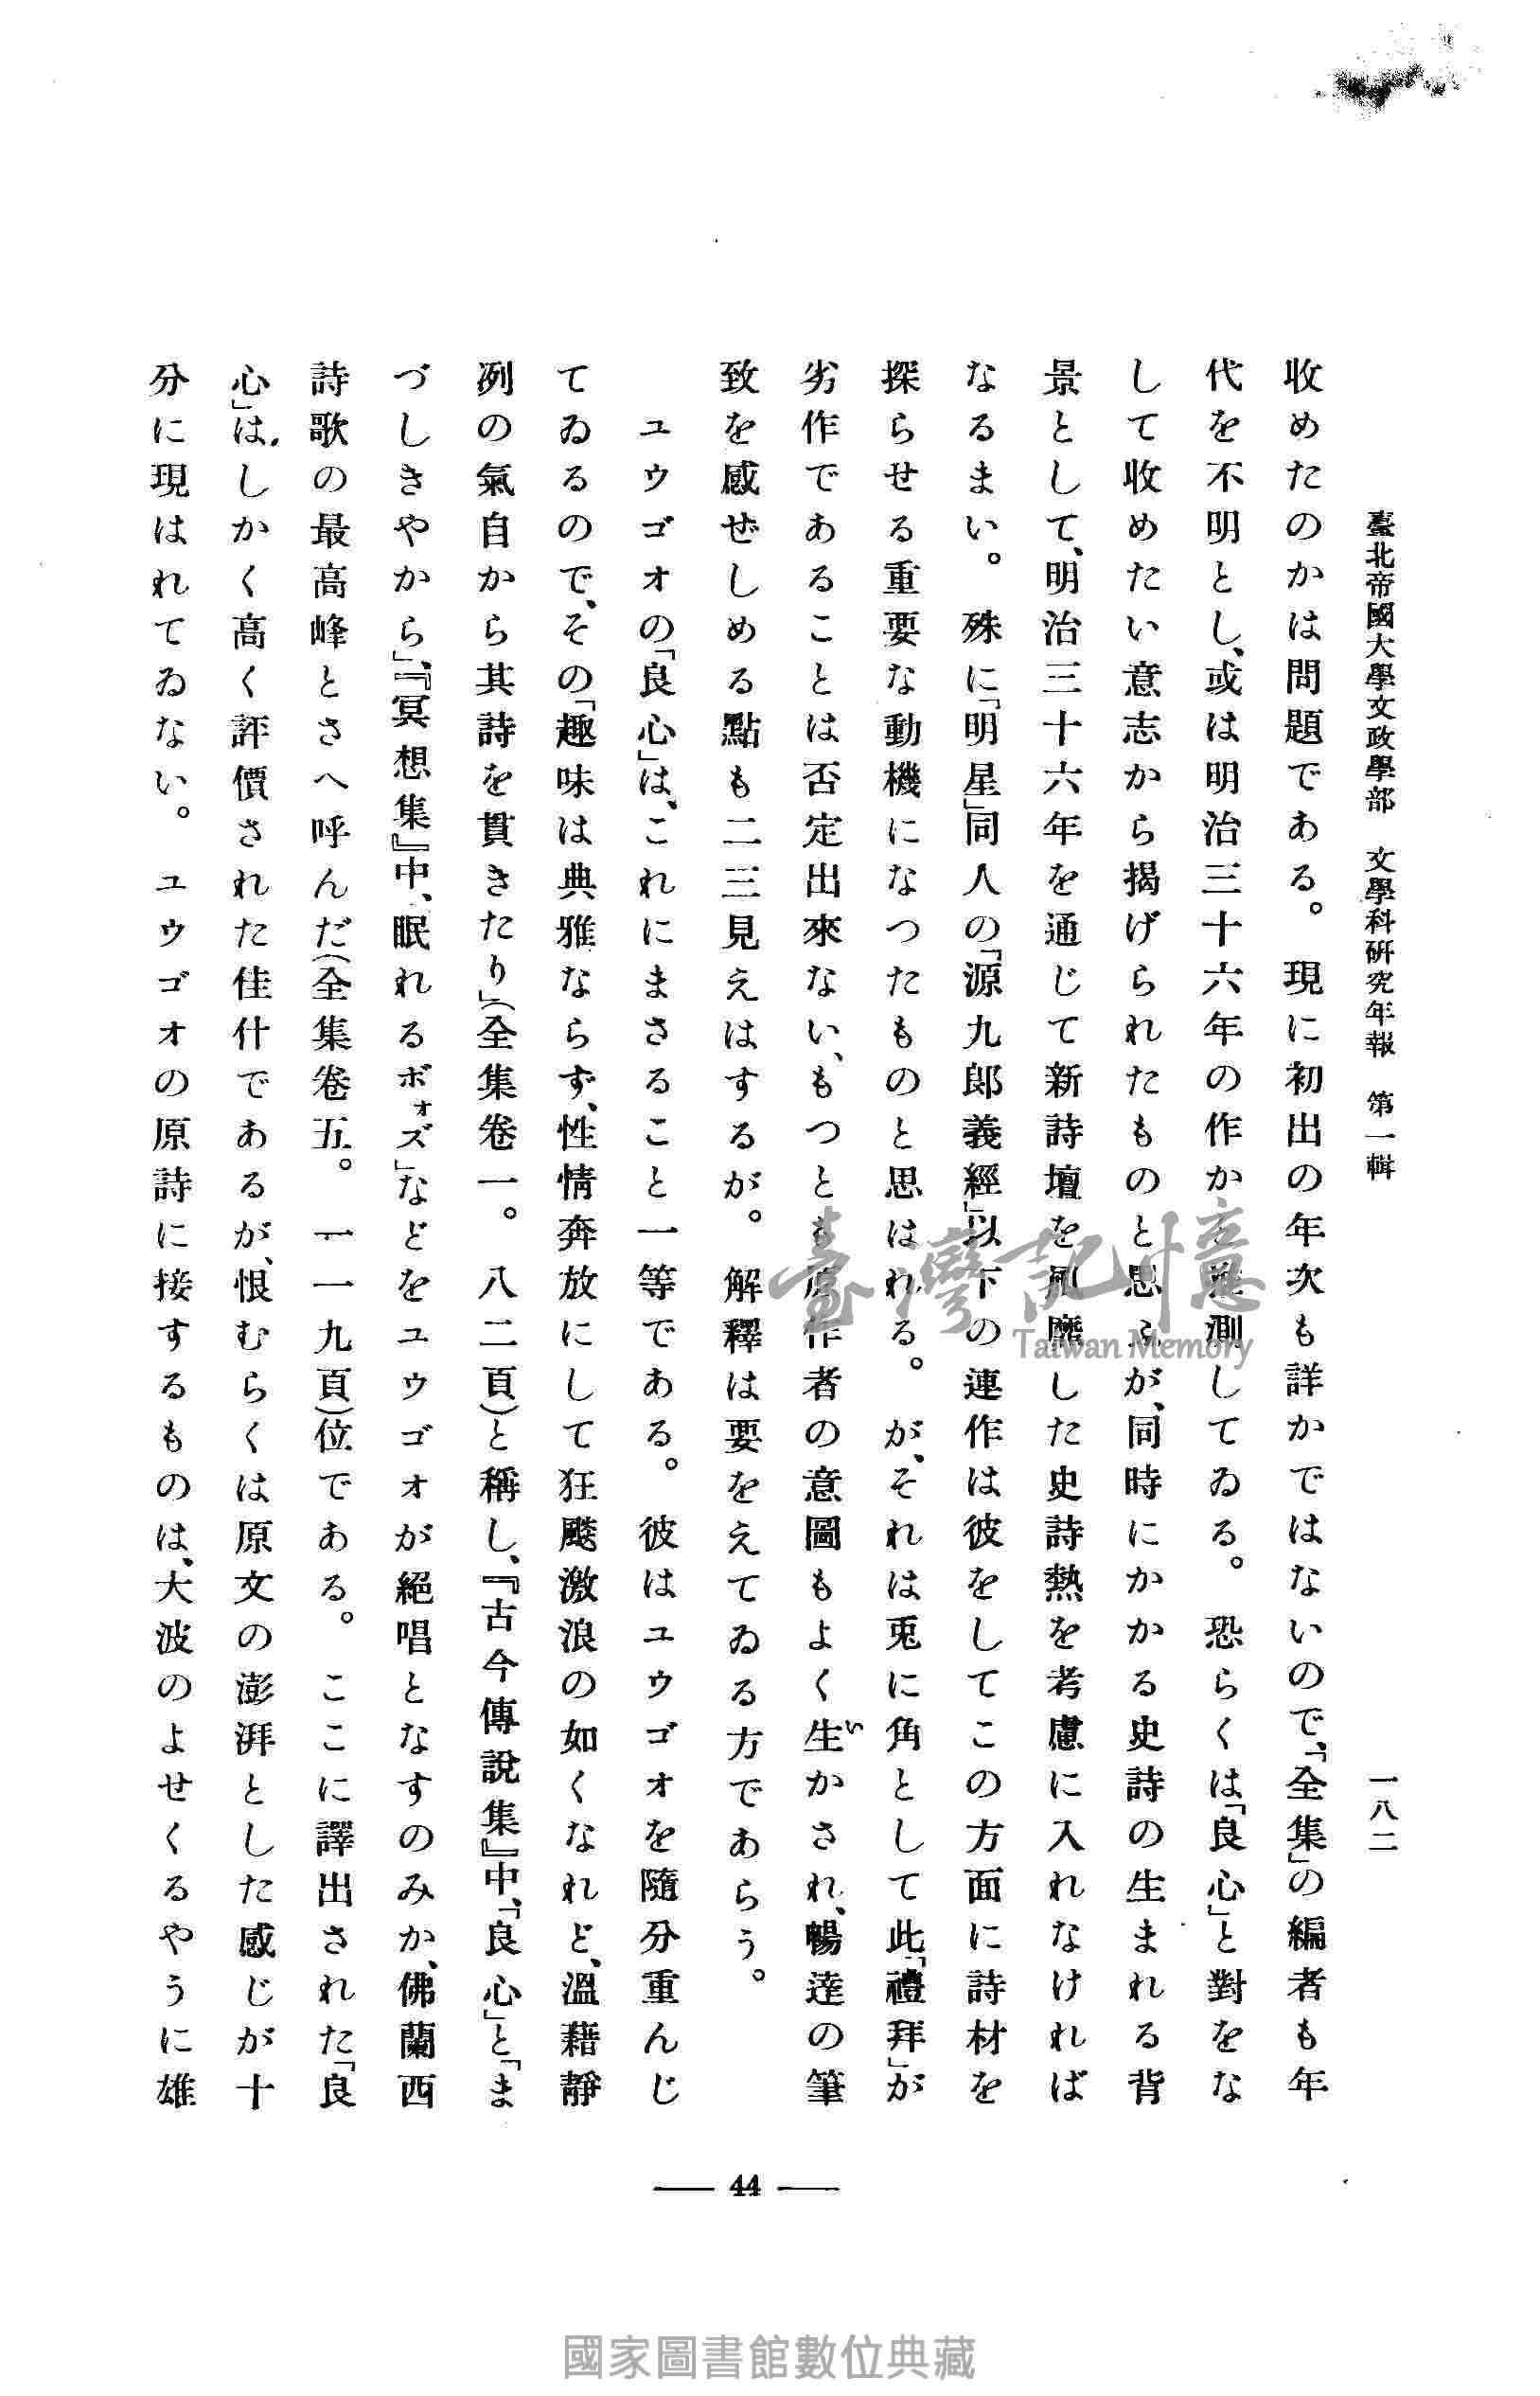 臺北帝國大學文政學部　文學科研究年報　第一輯
一八二
收めたのかは問題である。現に初出の年次も詳かではないので、「全集」の編者も年
代を不明とし、或は明治三十六年の作かと推測してゐる。恐らくは「良心」と對をな
して收めたい意志から揭げられたものと思ふが、同時にかかる史詩の生まれる背
景として、明治三十六年を通じて新詩壇を風靡した史詩熱を考慮に入れなければ
なるまい。殊に「明星」同人の「源九郎義經」以下の連作は彼をしてこの方面に詩材を
探らせる重要な動機になつたものと思はれる。が、それは兎に角として此「禮拜」が
劣作であることは否定出來ない、もつとも原作者の意圖もよく生かされ、暢達の筆
致を感ぜしめる點も二三見えはするが。解釋は要をえてゐる方であらう。
ユウゴオの「良心」は、これにまさること一等である。彼はユウゴオを隨分重んじ
てゐるので、その「趣味は典雅ならず、性情奔放にして狂飈激浪の如くなれど、溫藉靜
冽の氣自から其詩を貫きたり」(全集卷一。八二頁)と稱し、『古今傳說集』中、「良心」と「ま
づしきやから」、『冥想集』中、眠れるボォズ」などをユウゴオが絕唱となすのみか、佛蘭西
詩歌の最高峰とさへ呼んだ(全集卷五。一一九頁)位である。ここに譯出された「良
心」は、しかく高く評價された佳什であるが、恨むらくは原文の澎湃とした感じが十
分に現はれてゐない。ユウゴオの原詩に接するものは、大波のよせくるやうに雄
い
— 44 —
臺灣記憶
Taiwan Memory
國家圖書館數位典藏